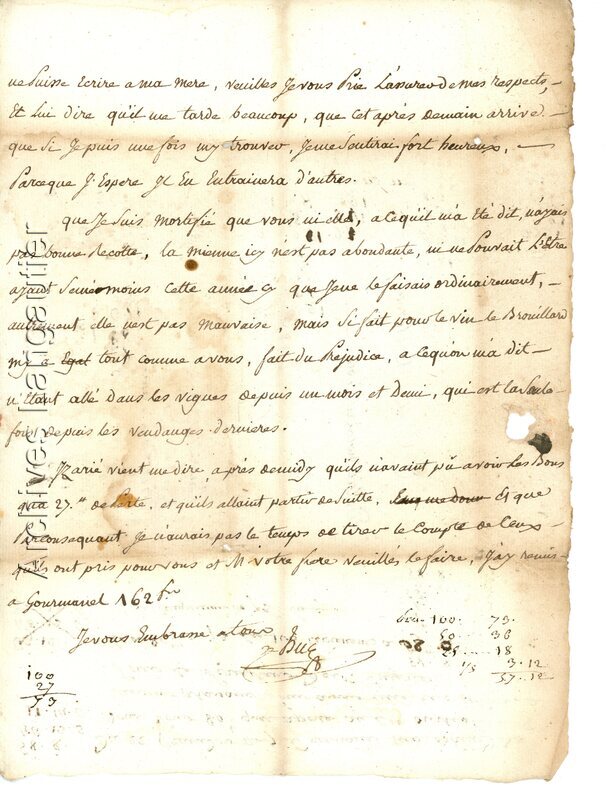 ne Puisse Ecrire a ma mere, veuilles Je vous Prie L'assurer de mes respects,
Et Lui dire qu'il me tarde beaucoup, que cet apres demain arrive.
que si Je puis une fois my trouver, Je me Sentirai fort heureux,
Parceque J'Espere Jl En Entrainera d'autres.
que Je suis mortifié que vous ni elle, a cequ'il m'a Eté dit, n'ayais
pas bonne Recolte, la mienne icy n'est pas abondante, ni ne Pouvait L'être
ayant Semé moins cette année cy que Je ne le faisais ordinairement,
autrement elle n'est pas mauvaise, mais Si fait pour le vin le Brouillard
my a Egat tout comme a vous, fait du Prejudice, a cequ'on m'a dit
n'Etant allé dans les vignes depuis un mois et Demi, qui est la Seule
fois depuis les vendanges dernieres.
vient me dire, apres demidy qu'ils n'avaint pû avoir Les Bons
qua 27.tt de Perte, et qu'ils allaint partir de Suitte. Et que
Parconsequant Je n'aurais pas le temps de tirer le Compte de Ceux
qu'ils ont pris pour vous et Mr votre frere veuillés le faire, J'ay remis
a Gourmanel 162 ₶
Je vous Embrasse a tous
100
27
73
100 - 73.
50 - 36
25 - 18
1/5 3.12
57..12
Archives Langautier